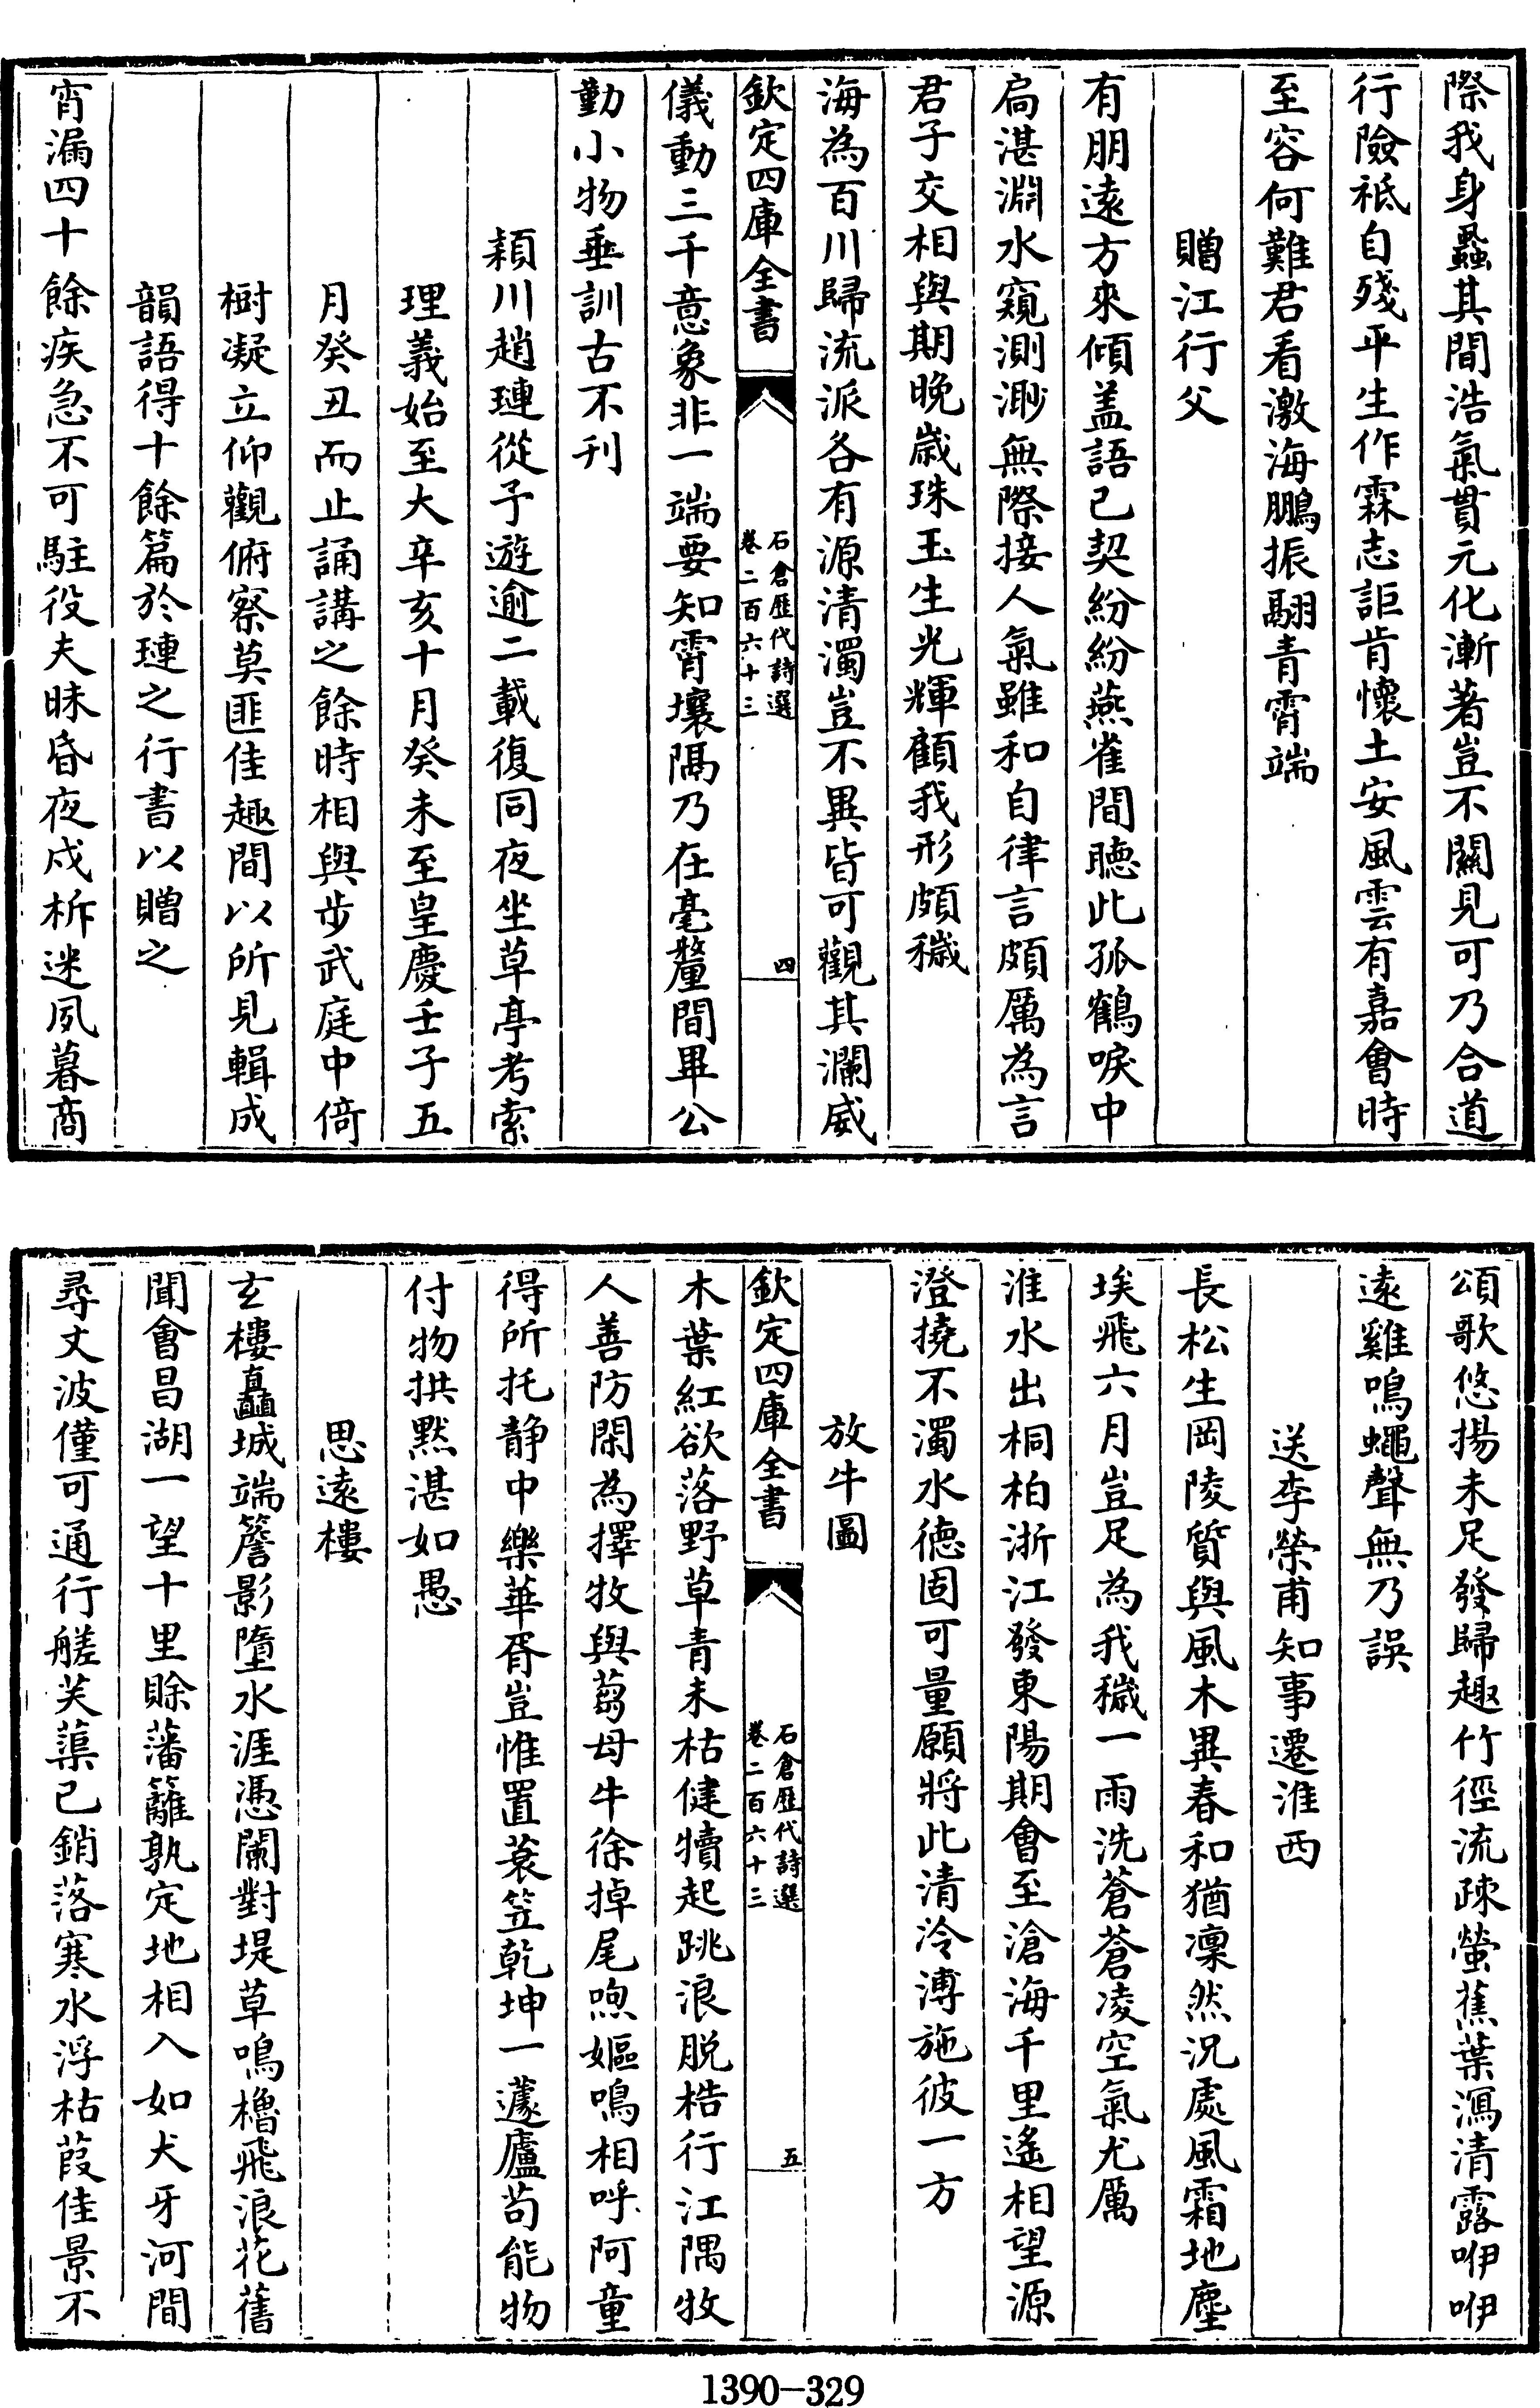 際我身蝨其間浩氣貫元化漸著豈不關見可乃合道
行險祗自殘平生作霖志詎肯懷土安風雲有嘉會時
至容何難君看激海鵬振翮青霄端
贈江行父
有朋遠方來傾盖語已契紛紛燕雀間聴此孤鶴唳中
扃湛淵水窺測渺無際接人氣雖和自律言頗厲為言
君子交相與期晚歳珠玉生光輝顧我形頗穢
海為百川歸流派各有源清濁豈不異皆可觀其瀾威
欽定四庫全書
石倉歷代詩選
卷二百六十三
四
儀動三千意象非一端要知霄壤隔乃在毫釐間畢公
勤小物垂訓古不刋
頴川趙璉從予遊逾二載復同夜坐草亭考索
理義始至大辛亥十月癸未至皇慶壬子五
月癸丑而止誦講之餘時相與步武庭中倚
樹凝立仰觀俯察莫匪佳趣間以所見輯成
韻語得十餘篇於璉之行書以贈之
宵漏四十餘疾急不可駐役夫昧昏夜戍柝迷夙暮商
頌歌悠揚未足發歸趣竹徑流疎螢蕉葉瀉清露咿咿
遠雞鳴蠅聲無乃誤
送李榮甫知事遷淮西
長松生岡陵質與風木異春和猶凜然況處風霜地塵
埃飛六月豈足為我穢一雨洗蒼蒼凌空氣尤厲
淮水出桐柏浙江發東陽期會至滄海千里遙相望源
澄撓不濁水德固可量願將此清泠溥施彼一方
放牛圖
欽定四庫全書
石倉歷代詩選
卷二百六十三
五
木葉紅欲落野草青未枯健犢起跳浪脱梏行江隅牧
人善防閑為擇牧與蒭母牛徐掉尾喣嫗鳴相呼阿童
得所托静中樂華胥豈惟置蓑笠乾坤一蘧廬苟能物
付物拱黙湛如愚
思遠樓
玄樓矗城端簷影墮水涯憑闌對堤草鳴櫓飛浪花舊
聞會昌湖一望十里賒藩籬孰定地相入如犬牙河間
尋丈波僅可通行艖芙蕖已銷落寒水浮枯葭佳景不
1390-329